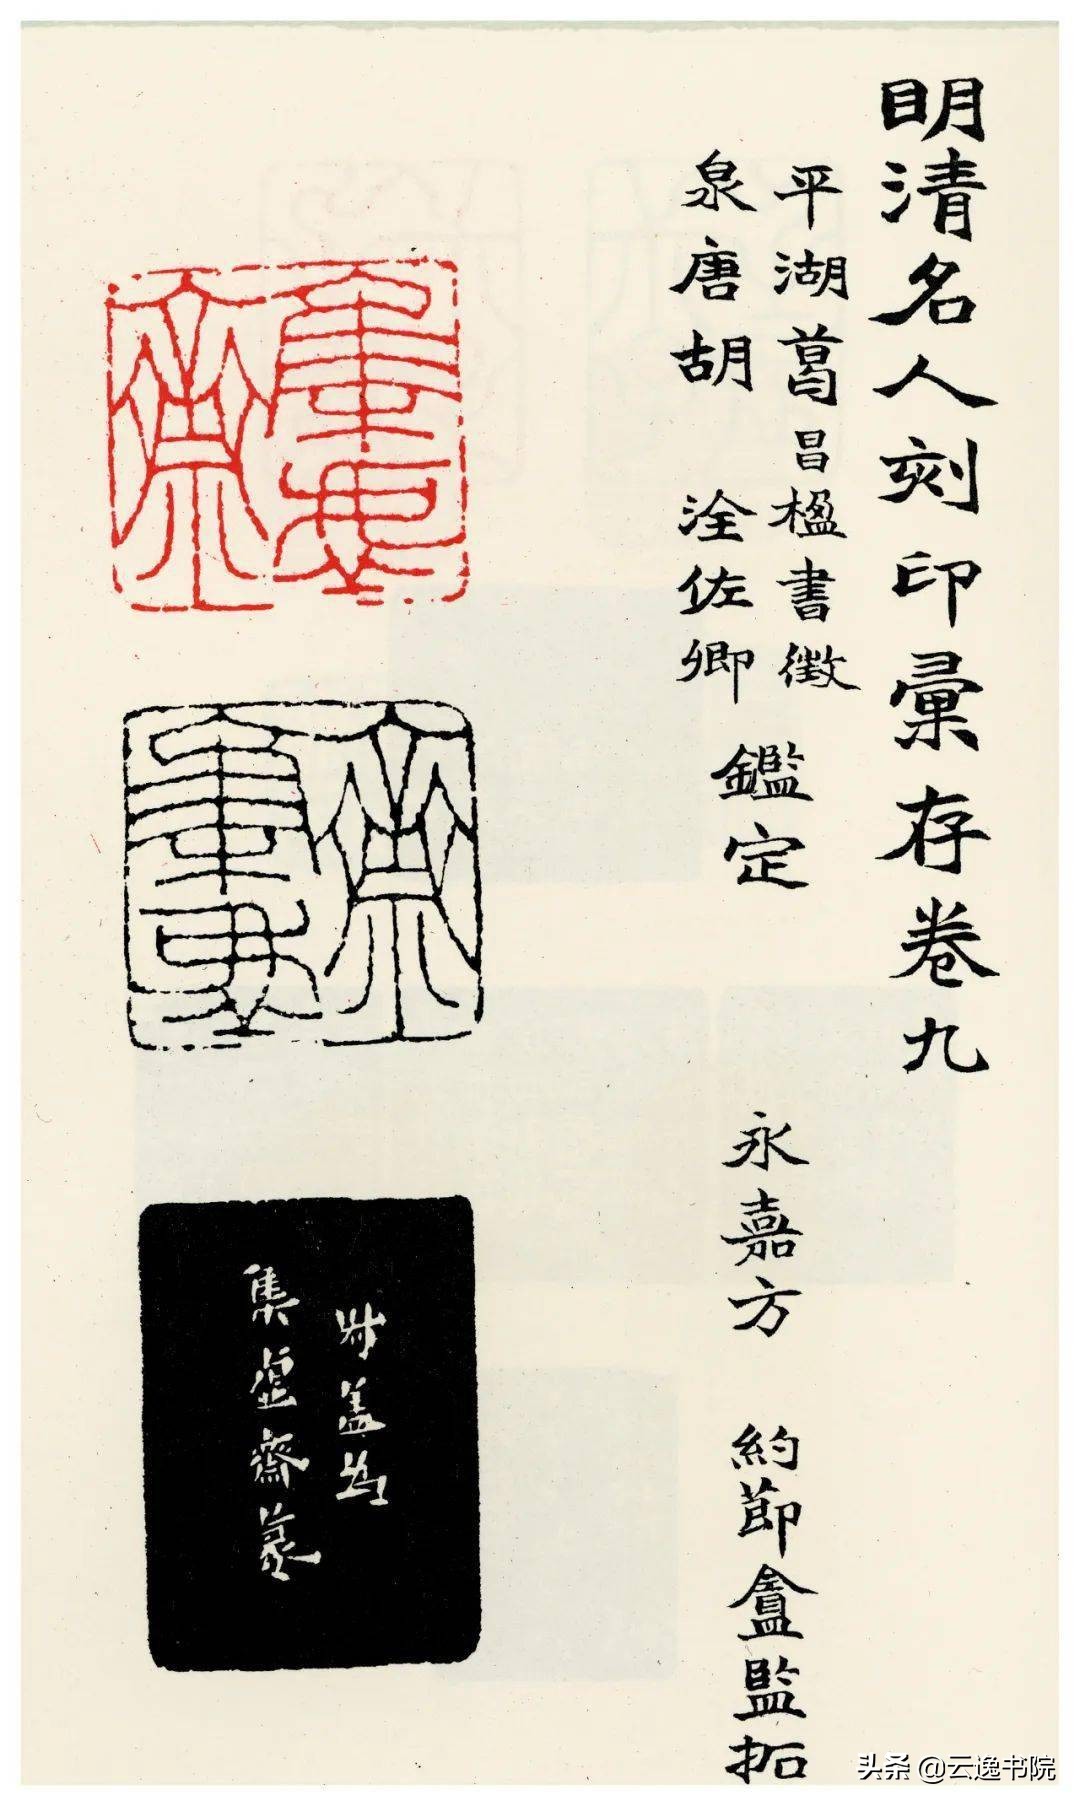 明清名人刻印彙存卷九
平湖葛昌楹書徵
泉唐胡 洤佐卿
鑑定
永嘉方 約節盦監拓
集虛齋
头条 @云逸书院